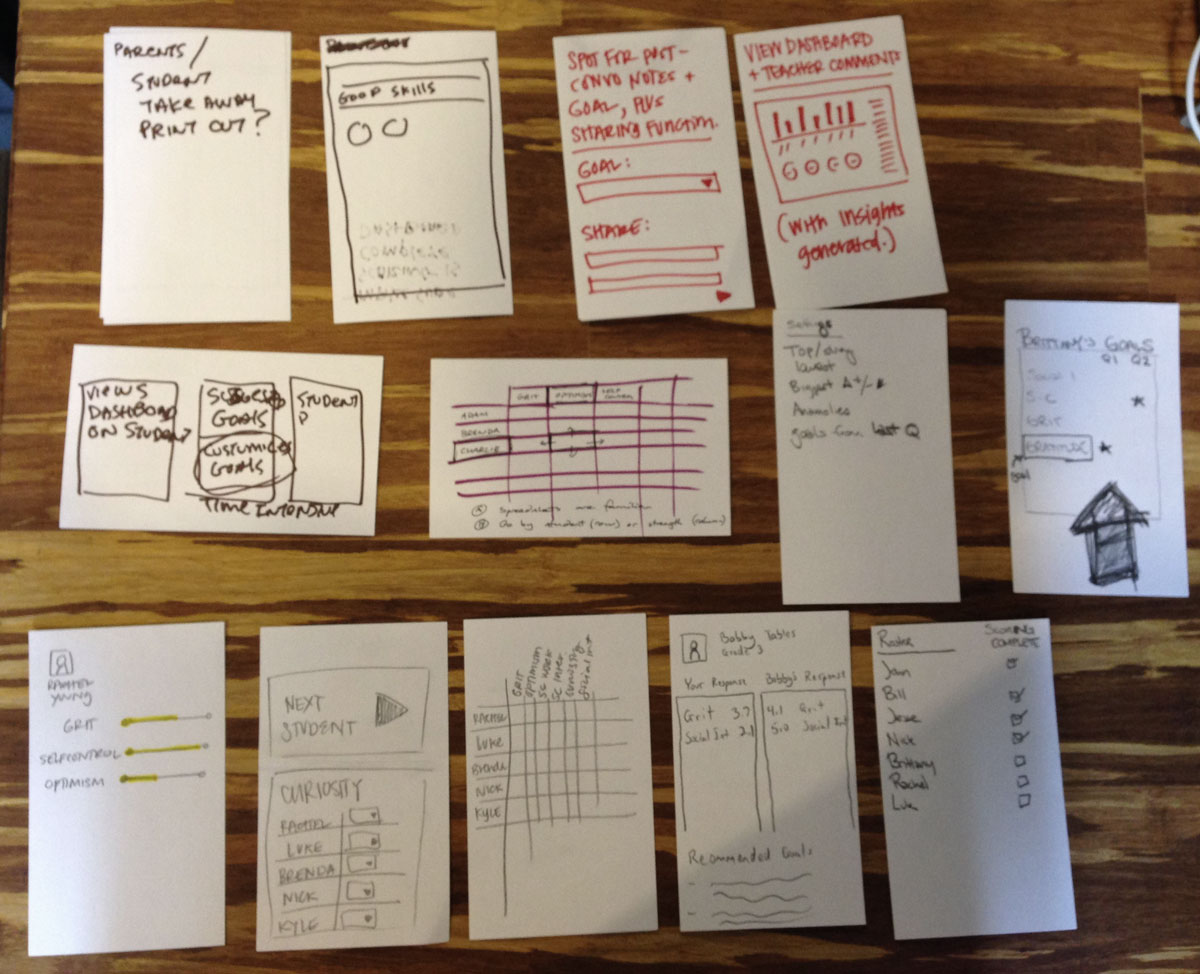 PARENTS/
STUDENT
TAKE AWAY
PRINT OUT?
GOOP SKILLS
SPOT FOR POST-
CONVO NOTES +
GOAL, PLUS
SHARING FUNCTION.
GOAL:
SHARE:
VIEW DASHBOARD
+ TEACHER COMMENTS
(with insights
generated.)
VIEWS
DASHBOARD
ON STUDENT
GOALS
CUSTUMICE
GOALS
TIME INTENSIVE
STUDENT
P
GRIT OPTIMISM SELF CONTROL
ADAM
BRENDA
CHARLIE
Ⓐ Spreadsheets are familiar
Ⓑ Go by student (row) or strength (column)
Settings
lowest
Biggest Δ +/-
Anomalies
goals from last Q
BRITTANY'S GOALS
Q1 Q2
S-C
GRIT
GRATITUDE
goal
RACHEL
YOUNG
GRIT
SELFCONTROL
OPTIMISM
NEXT
STUDENT
CURIOSITY
RACHEL
LUKE
BRENDA
NICK
KYLE
GRIT
OPTIMISM
RACHEL
LUKE
Brenda
NICK
KYLE
Bobby Tables
Grade 3
Your Response Bobby's Response
Grit 3.7 4.1 Grit
Social Int 2.1 5.0 Social Int
Recommended Goals
Roster SCORING
COMPLETE
Jain
Bill
Jesse
Nick
Brittany
Rachel
Luke